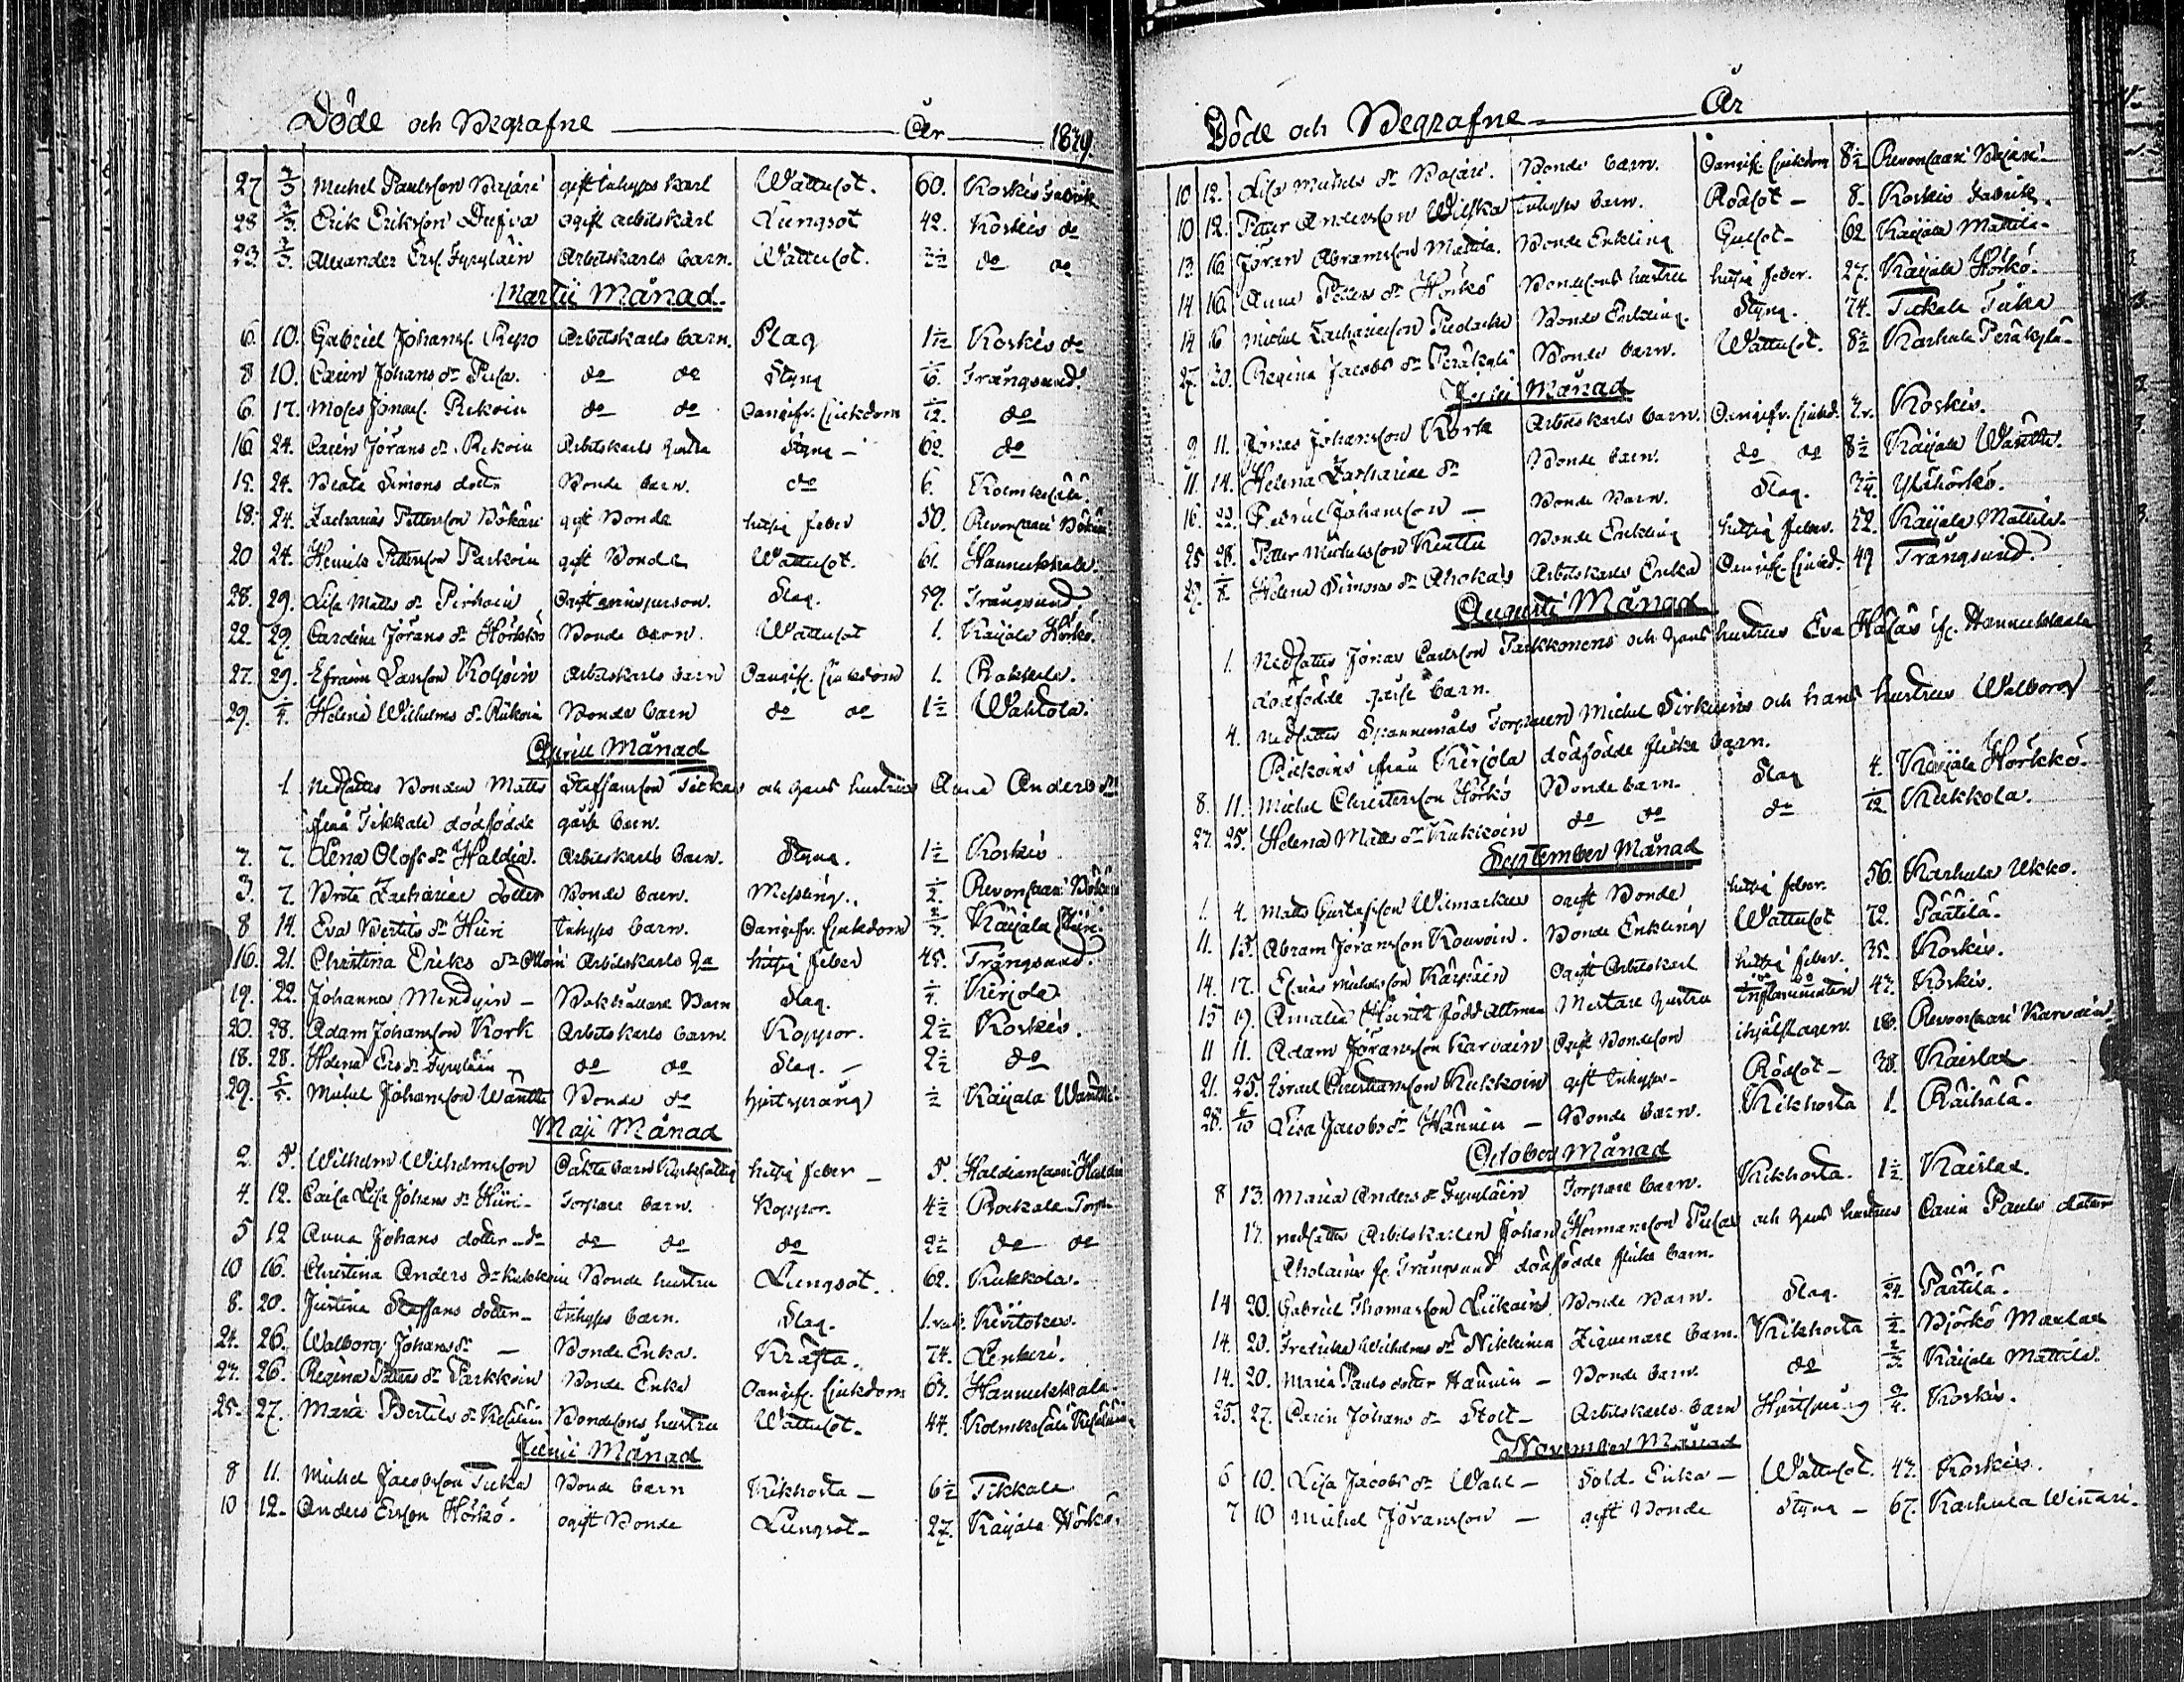 Döde och Begrafne År 1839.
27 2/3 Michel Paulsson Bajári gift Inhyses karl Wattusot. 60. Koskis Fabrik
28 2/3 Erik Eriksson Dufva ogift arbetskarl Lungsot 42. Koskis do
23. 2/3 Alexander Ersf. Fyrylàin Arbetskarls barn. Wattusot. do do
Martii Månad.
6. 10. Gabriel Johansf. Repo Arbetskarls barn. Slag 1 1/2 Koskis do
8 10. Carin Johans dr Pusa. do do Styng Trångsund.
6. 17. Moses Jonasf. Rekoin do do Oangifv. sjukdom 1/12 do
16 24. Carin Jörans dr Rekoin Arbetskarls hustru Styng - 62. do
15. 24. Beata Simons dotter Bonde barn. do 6. Kolmikesälä.
18. 24. Zacharias Pettersson Bökäri gift Bonde hitsig feber 50. Revonsaari Bökäri
20 24. Henrik Pettersson Parkoin gift Bonde Wattusot. 61. Hannukkala.
28. 29. Lisa Matts dr Pirhoin Ogift qvinsperson. Slag. 59. Trångsund.
22. 29. Carolina Jörans dr Hörkkö Bonde barn. Wattusot 1. Kaijala Hörkö.
27. 29. Efraim Larsson Koljoin Arbetskarls barn Oangifv. sjukdom 1. Rakkala.
29. 1/4. Helena Wilhelms dr Rükoin Bonde barn do do 1 1/2 Wahtola.
Aprill Månad
1. Nedsattes Bonden Matts Staffansson Tickas och hans hustrus Anna Anders dr
ifrån Tikkala dödfödde gåsse barn.
7. 7. Lena Olofs dr Haldia. Arbetskarls barn. Styng. 1 1/2 Koskis
3. 7. Brita Zachariæ dotter Bonde barn. Messling. 1/2. Revonsaari Bökäri
8 14. Eva Bertils dr Hüri Inhyses barn. Oangifv. sjukdom Kaijala Hüri
16. 21. Christina Eriks dr Arbetskarls ha hitsig feber 45. Trångsund.
19. 22. Johanna Mendyin - Bokhållare Barn Slag. Kirjola
20. 28. Adam Johansson Kork Arbetskarls barn. Koppor. 2 1/2 Koskis.
18. 28. Helena Ers dr Fyrylàin do do Slag. - 2 1/2 do
29. 5/5. Michel Johansson Wänttä Bonde do hjertsprång 1/2 Kaijala Wänttä.
Maji Månad
2. 5. Wilhelm Wilhelmsson Oäkta barn hitsig feber - 5. Haldiansaari Haldia
4. 12. Caisa Lisa Johans dr Hüri - Torpare barn. Koppor. 4 1/2 Rockala Torp.
5 12 Anna Johans dotter - do do do do 2 1/2 do do
10 16. Christina Anders dr Kukkoin Bonde hustru Lungsot. 62. Kukkola.
8. 20. Justina Staffans dotter - Inhyses barn. Slag. 1. Keritokes.
24. 26. Walborg Johans dr - Bonde Enka. Kräfta. 74. Lenkeri.
24. 26. Regina Matts dr Parkkoin Bonde Enka Oangifv. sjukdom 67. Hannukkala.
25. 27. Maria Bertils dr Kesälain Bondesons hustru Wattusot. 44. Kolmikesälä Kesäläin
Junii Månad
8 11. Michel Jacobsson Ticka Bonde barn Kikhosta - 6 1/2 Tikkala
10 12. Anders Ersson Hörkö. ogift Bonde Lungsot - 27. Kaijala Hörkö.
Döde och Begrafne År
10 12. Lisa Michels dr Bajári. Bonde barn. Oangifv. sjukdom 8 1/2 Revonsaari Bajari.
10 12. Petter Andersson Wilska Inhyses barn. Rödsot - 8. Koskis Fabrik.
13 16. Jöran Abramsson Mattila. Bonde Enkling Gulsot - 62 Kaijala Mattila.
14 16. Anna Petters dr Hörkö Bondesons hustru hitsig feber. 27. Kaijala Hörkö.
14 16 Michel Zachariasson Bonde Enkling. Styng. 74. Tickala Ticka
27. 30. Regina Jacobs dr Peräkylä Bonde barn. Wattusot. 8 1/2 Karhula Peräkylä.
Julii Månad
9 11. Jonas Johansson Kork Arbetskarls barn. Oangifv. sjukd. Koskis.
11. 14. Helena Zachariae dr Bonde barn. do do 8 1/2 Kaijala Wänttä.
16. 22. Gabriel Johansson - Bonde Barn. Slag. Ylähörkö.
25 28. Petter Michelsson Bonde Enkling hitsig feber. 52. Kaijala Mattila.
29. Helena Simons dr Ahokas Arbetskarls Enka Oangifv. sjukd. 49 Trångsund.
Augusti Månad
1. Nedsattes Jonas Carlsson Parkkonens och hans hustrus Eva Halas if. Hannukkala
dödfödde gåsse barn.
4. Nedsattes Torparen Michel Sirkiains och hans hustrus Walborg
Rickoins ifrån Kirjola dödfödde flicke barn.
8. 11. Michel Christersson Hörkö Bonde barn. Slag 4. Kaijala Hörkkö.
27. 25. Helena Matts dr Kukkoin do do do 1/12 Kukkola.
September Månad
1. 4. Matts Gustafsson Wilmarkus ogift Bonde hitsig feber. 56. Karhula Ukko.
11. 15. Abram Jöransson Kouvoin. Bonde Enkling Wattusot 72. Päätilä.
14. 17. Elias Michelsson Käyhkein Ogift Arbetskarl hitsig feber. 35. Koskis.
15 19. Amalia född Altman Mestare hustru Inflammation 47. Koskis.
11 11. Adam Jöransson Karvain Ogift Bondeson ihjälslagen. 18. Revonsaari Karvain
21. 25. Israel Christiansson Kukkoin gift Inhyses - Rödsot - 38. Kaislax
28. 6/10 Lisa Jacobs dr Hännin - Bonde barn. Kikhosta 1. Räihälä.
October Månad
8 13. Maria Anders dr Fyrylàin Torpare barn. Kikhosta. 1 1/2 Kaislax.
17. nedsattes Arbetskarlen Johan Hermansson Pusas och hans hustrus Carin Pauls dotter
Aholains fr. Trångsund dödfödde flicke barn.
14 20. Gabriel Thomasson Liikain. Bonde Barn. Slag. 1/24. Päätilä.
14. 20. Fredrika Wilhelms dr Nikkinen Ziguenare barn. Kikhosta 1/2. Björkö Maxlax
14. 20. Maria Pauls dotter Hännin - Bonde barn. do 2/3. Kaijala Mattila.
25. 27. Carin Johans dr Stolt - Arbetskarls barn Hjertsprång 3/4. Koskis.
November Månad
6 10. Lisa Jacobs dr Wahl - Sold. Enka - Wattusot. 47. Koskis.
7 10 Michel Jöransson - gift Bonde Styng - 67. Karhula Winari.